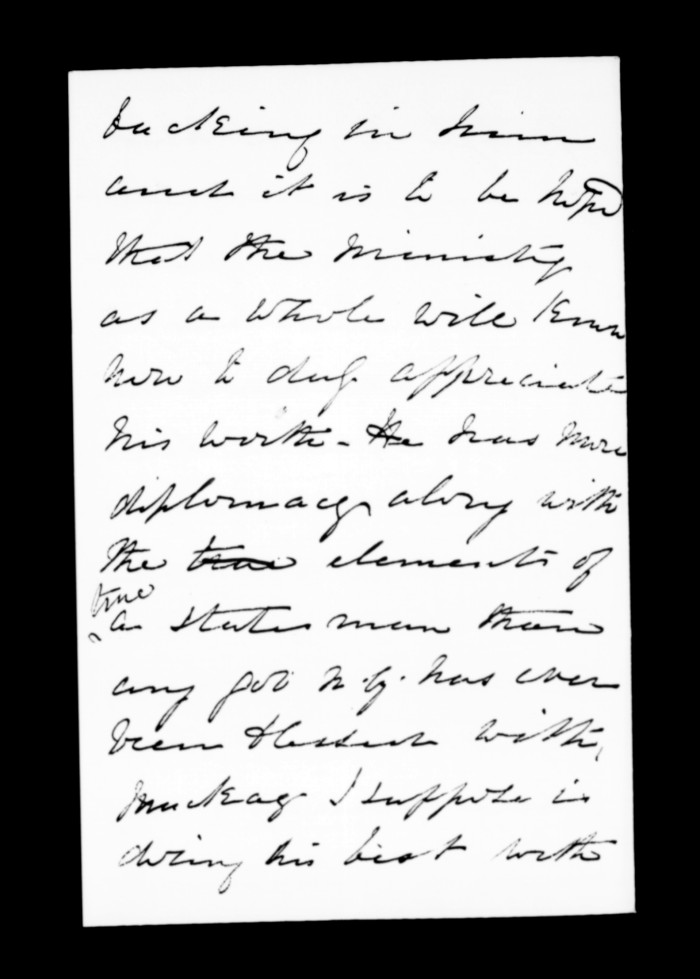 backing in him
and it is to be hoped
that the Ministry
as a whole will know
how to duly appreciate
his worth - He has more
diplomacy along with
the true elements of
true
a statesman than
any gov N.Z. has ever
been blessed with,
Mackay I suppose is
doing his best with